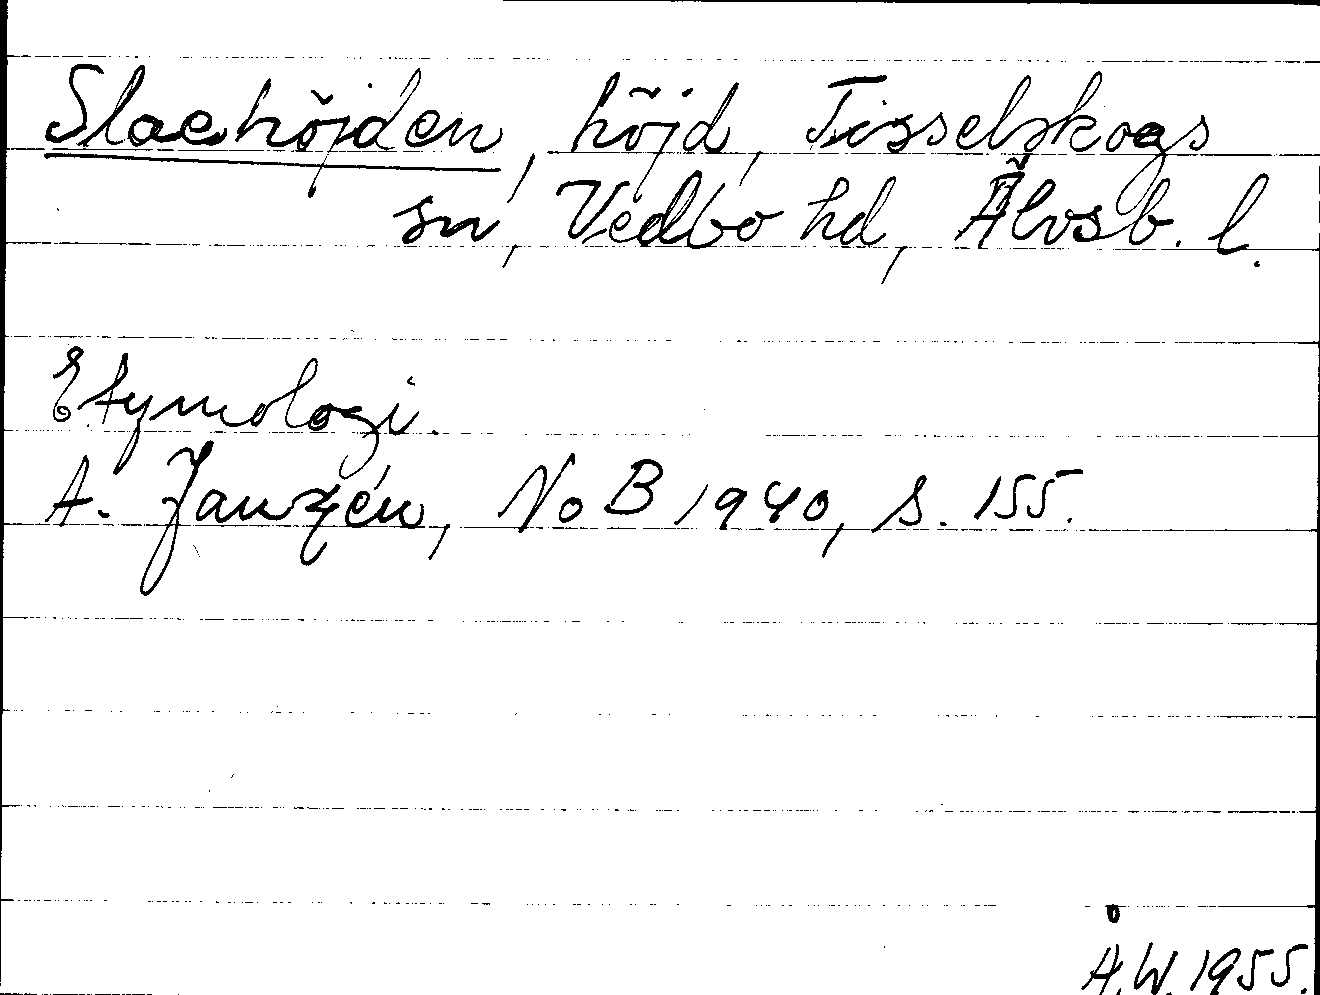 Slaehöjden, höjd, Tisselskogs
sn, Vedbo hd, Älvsb. l.
Etymologi.
A. Janzén, NoB 1940, s. 155.
Å.W. 1955.